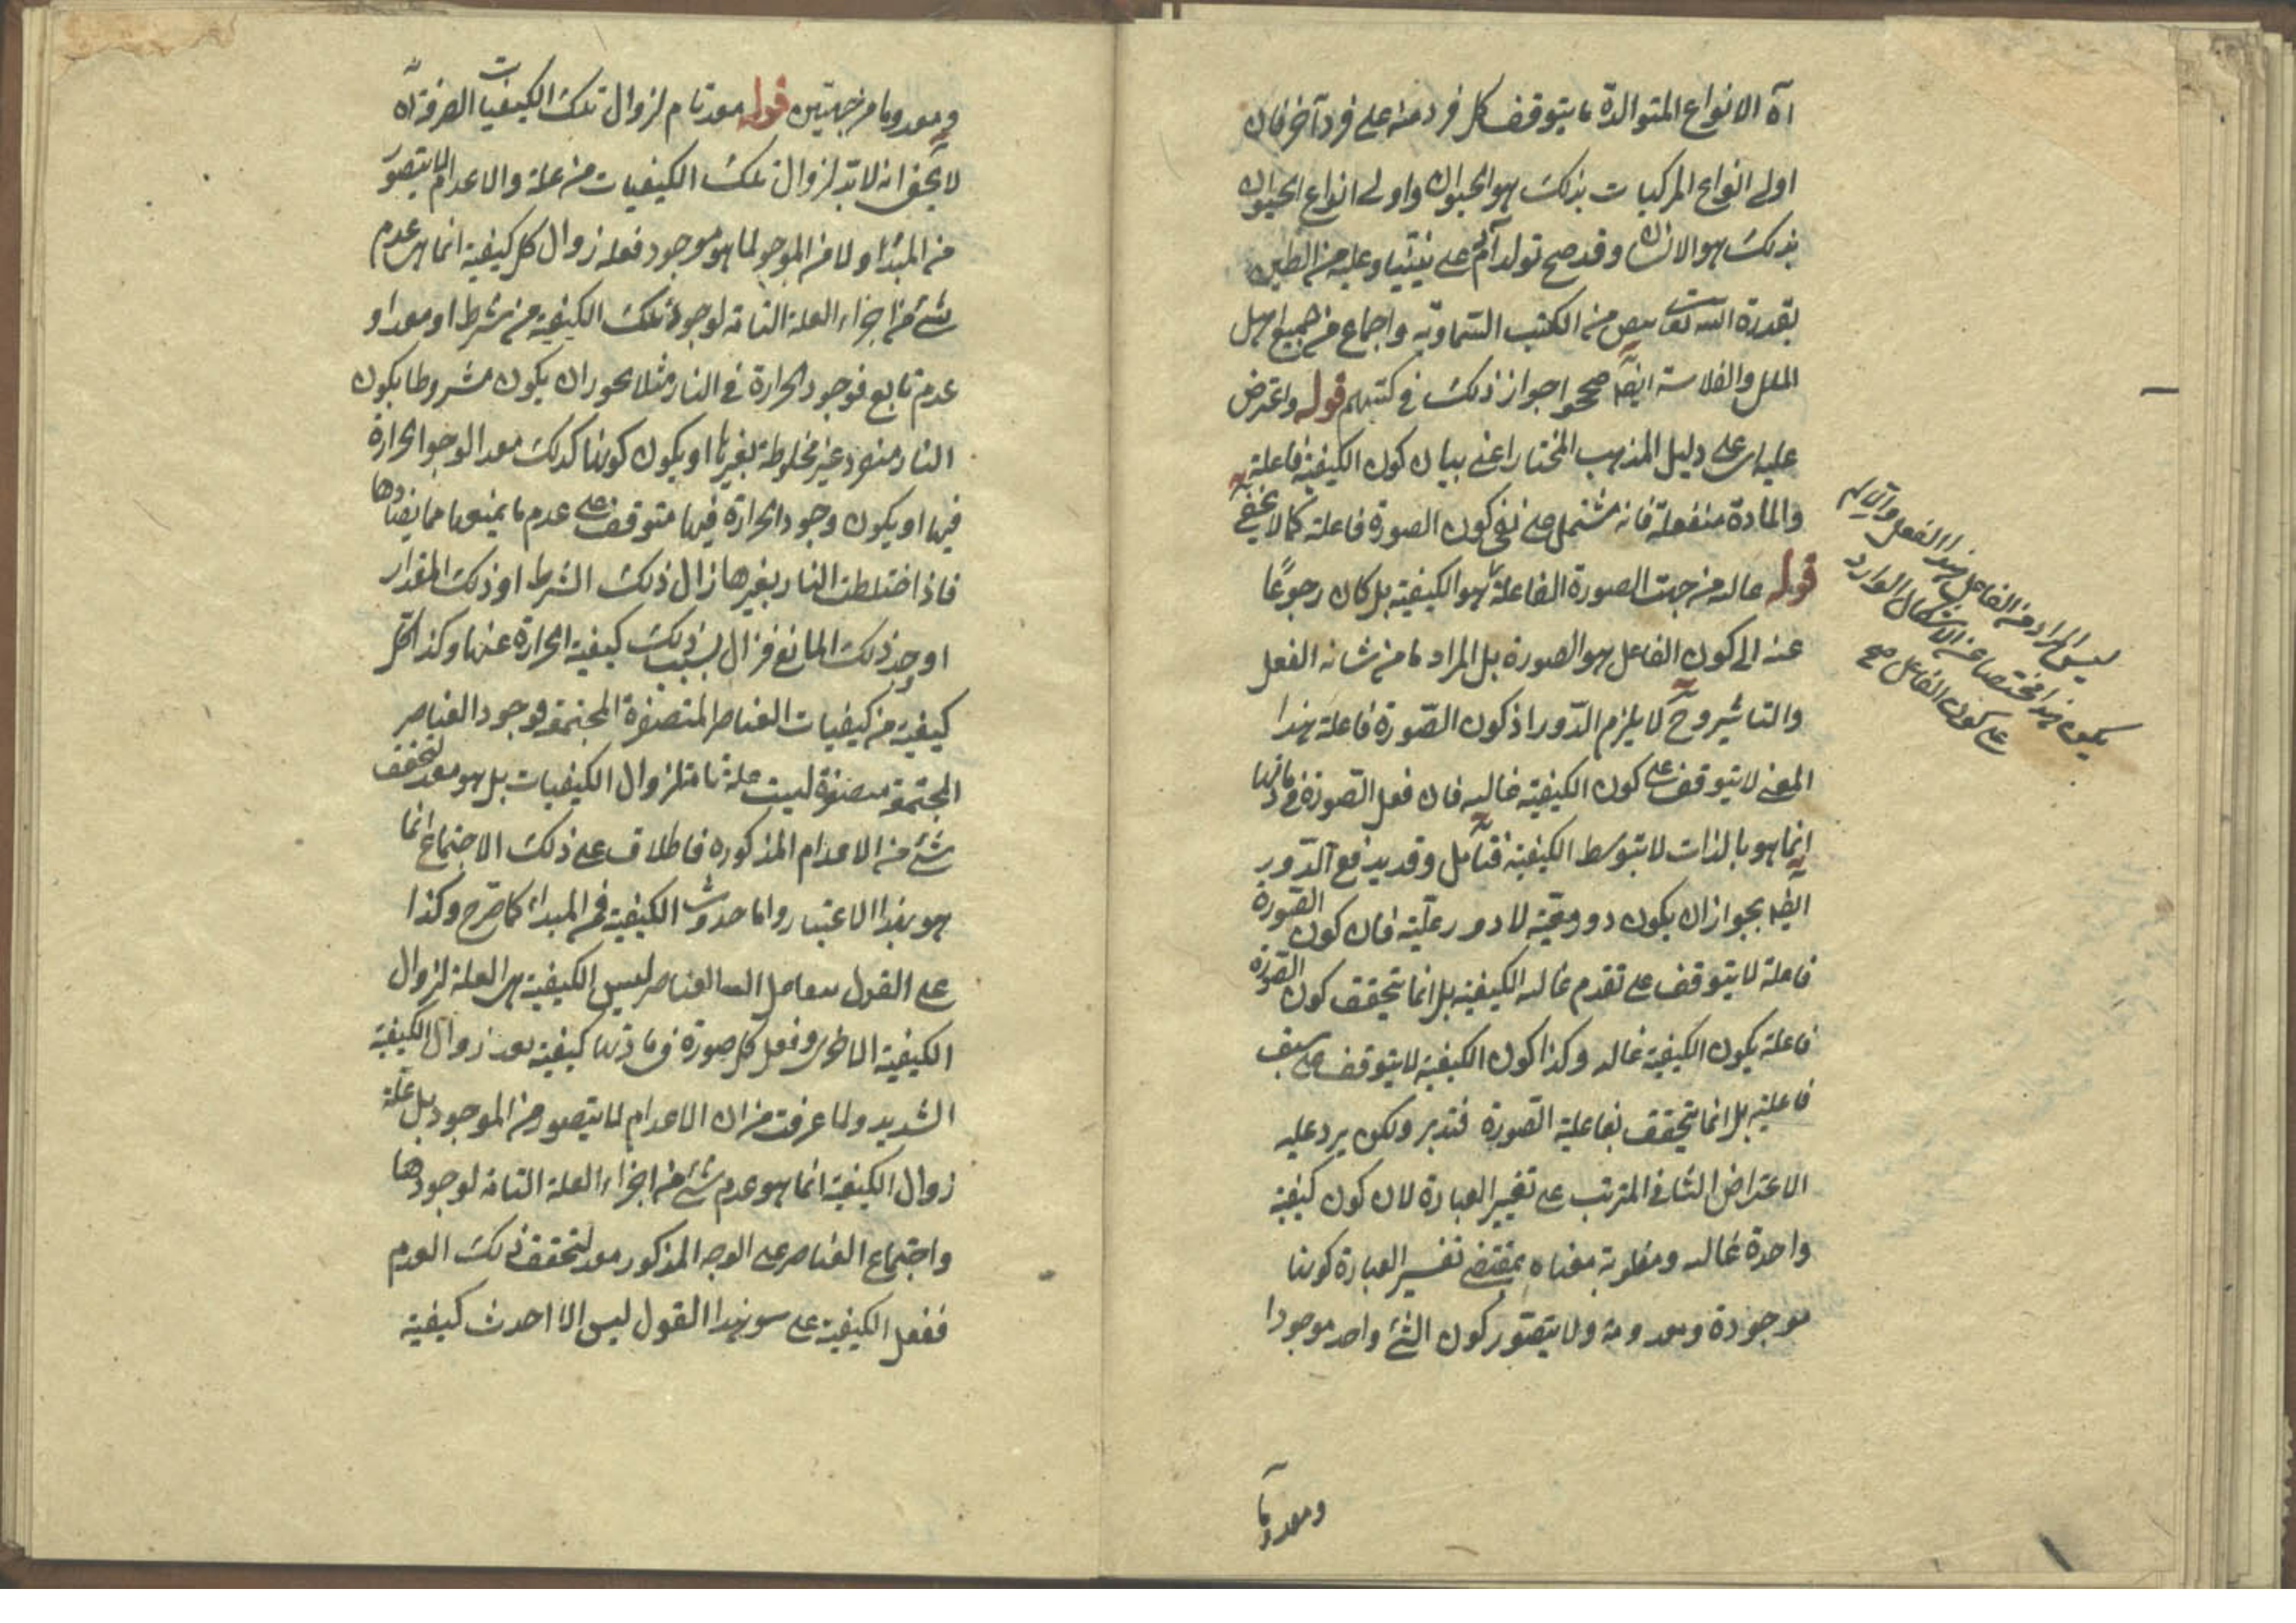 اه الانواع المتوالدة ما يتوقف كل فرد منه على فرد آخر فان
اولى انواع المركبات بذلك هو الحيوان واولى انواع الحيوان
بذلك هو الانسان وقد صح تولد آدم على نبينا وعليه من الطين
بقدرة الله تعالى بنص من الكتب السماوية واجماع من جميع اهل
الملل والفلاسفة ايضا صححوا جواز ذلك في كتبهم قوله واعترض
عليه اى على دليل المذهب المختار اعنى بيان كون الكيفية فاعلة
والمادة منفعلة فانه مشتمل على نفى كون الصورة فاعلة كما لا يخفى
قوله حاله من جهت الصورة الفاعلة هو الكيفية بل كان رجوعًا
عنه الى كون الفاعل هو الصورة بل المراد ما من شانه الفعل
والتاثير وح لا يلزم الدور اذ كون الصورة فاعلة بهذا
المعنى لا يتوقف على كون الكيفية غالبه فان فعل الصورة في مادتها
انما هو بالذات لا بتوسط الكيفية فتأمل وقد يدفع الدور
ايضا بجواز ان يكون دور معية لا دور علية فان كون الصورة
فاعلة لا يتوقف على تقدم غالبه الكيفية بل انما يتحقق كون الصورة
فاعلة بكون الكيفية غالبه وكذا كون الكيفية لا يتوقف على سبق
فاعليه بل انما يتحقق بفاعلية الصورة فتدبر ولكن يرد عليه
الاعتراض الثانى المترتب على تغيير العبارة لان كون كيفية
واحدة غالبه ومغلوبة معناه بمقتضى تفسير العبارة كونها
موجودة ومعدومة ولا يتصور كون الشئ واحد موجودا
ومعدوما
ليس المراد من الفاعل بهذا الفعل والا لم
يكون هذا مختصا عن الاشكال الوارد
على كون الفاعل صح
ومعدوما من جهتين قوله معد تام لزوال تلك الكيفيات الصرفة اه
لا يخفى انه لا بد لزوال تلك الكيفيات من علة والاعدام لا يتصور
من المبدا ولا من الموجود لما هو موجود فعله زوال كل كيفية انما هى عدم
شئ من اجزاء العلة التامة لوجود تلك الكيفية من شرط او معد او
عدم تابع فوجود الحرارة في النار مثلا يجوز ان يكون مشروطا بكون
النار منفرد غير مخلوطة بغيرها او يكون كونها كذلك معدا لوجود الحرارة
فيها او يكون وجود الحرارة فيها متوقف على عدم ما يمنعها مما يضادها
فاذا اختلطت النار بغيرها زال ذلك الشرط او ذلك المقدار
او وجد ذلك المانع فزال بسبب ذلك كيفية الحرارة عنها وكذا كل
كيفية من كيفيات العناصر المتصغرة المجتمعة فوجود العناصر
المجتمعة متصغرة ليست علة تامة لزوال الكيفيات بل هو معد لتحقق
شئ من الاعدام المذكورة فاطلاق على ذلك الاجتماع انما
هو بهذا الاعتبار واما حدوث الكيفية فمن المبدا كما صرح وكذا
على القول بتفاعل العناصر ليس الكيفية هى العلة لزوال
الكيفية وفعل كل صورة فى مادتها كيفية بعد زوال الكيفية
الشديد ولما عرفت من ان الاعدام لا يتصور من الموجود بل علة
زوال الكيفية انما هو عدم شئ من اجزاء العلة التامة لوجودها
واجتماع العناصر على الوجه المذكور معد لتحقق ذلك العدم
ففعل الكيفية على هذا القول ليس الا احدث كيفية